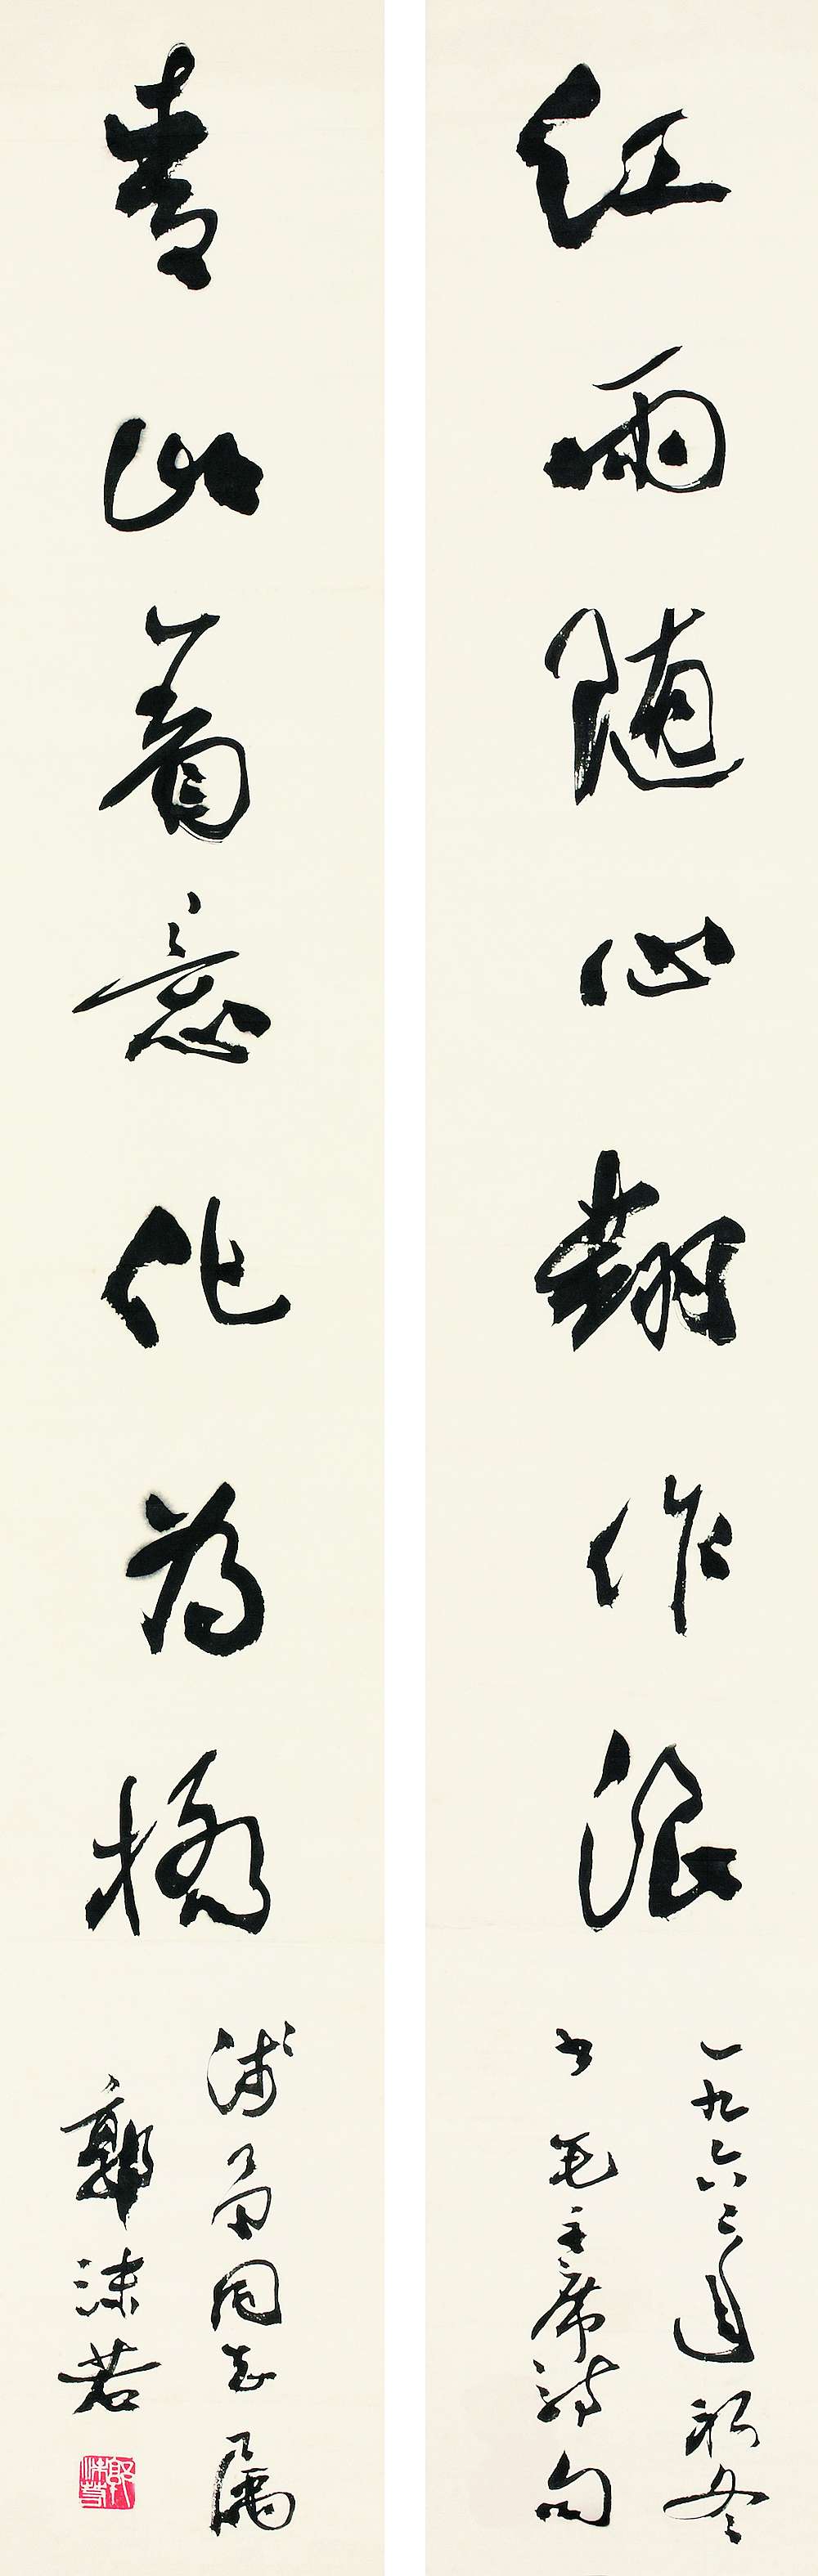 红雨随心翻作浪
一九六三年初冬
书毛主席诗句
青山着意化为桥
同志属
郭沫若
郭沫若